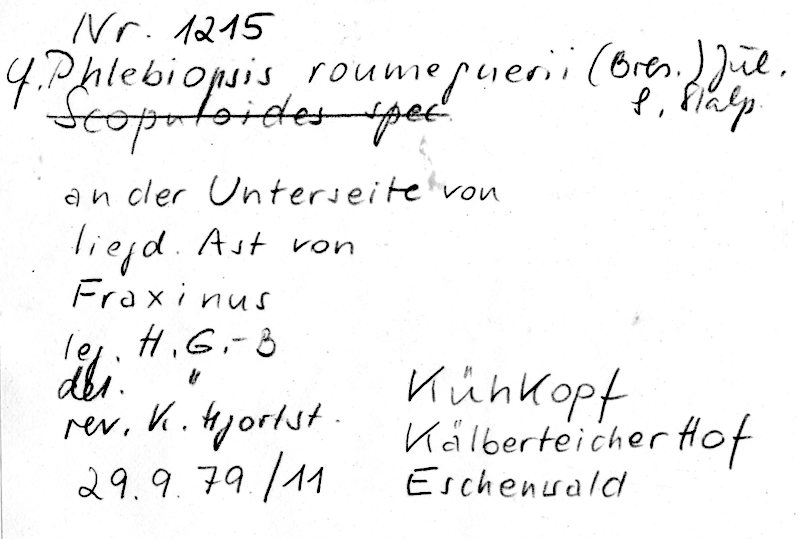 Nr. 1215
cf. Phlebiopsis roumeguerii (Bres.) Jül.
& Stalp.
Scopuloides spec
an der Unterseite von
liegd. Ast von
Fraxinus
leg. H. G.-B
det. "
rev. K. Hjortst.
29.9.79/11
Kühkopf
Kälberteicher Hof
Eschenwald